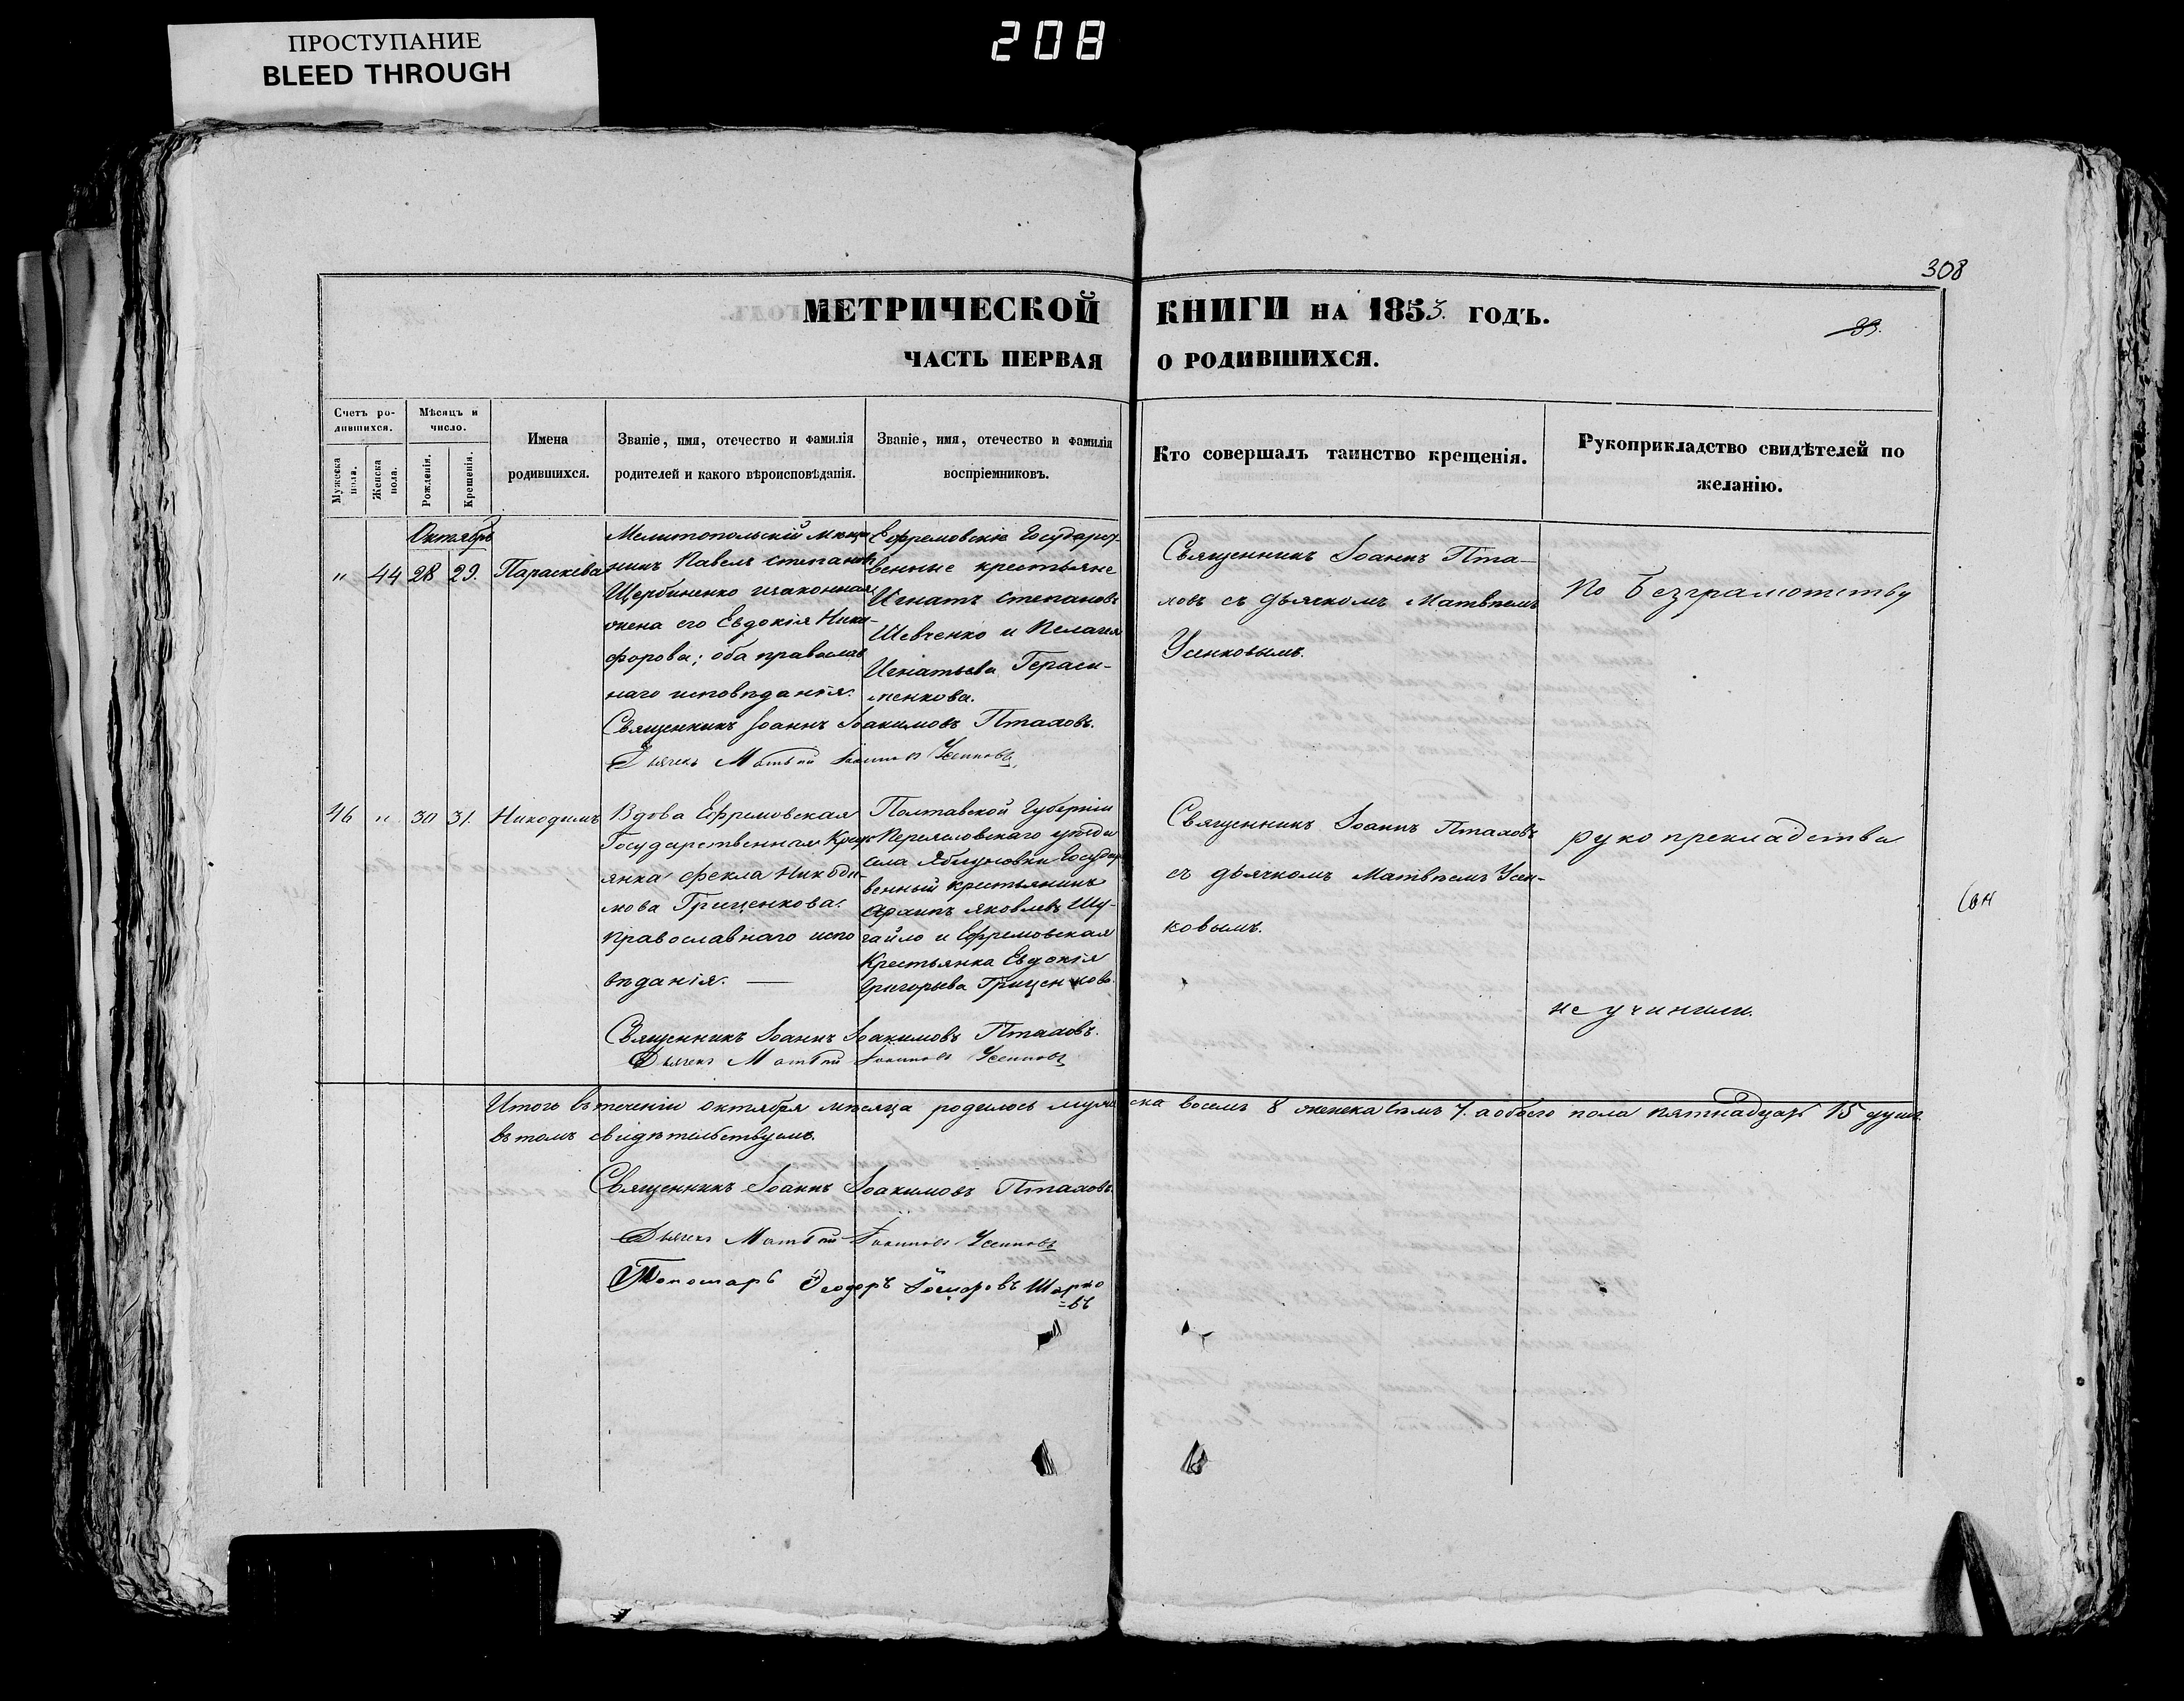 ПРОСТУПАНИЕ
BLEED THROUGH
208
308
МЕТРИЧЕСКОЙ КНИГИ НА 1853. ГОДЪ.
89.
ЧАСТЬ ПЕРВАЯ О РОДИВШИХСЯ.
Счетъ ро-
дившихся.
Мужеска пола.
Женска пола.
Мѣсяцъ и
число.
Рожденія.
Крещенія.
Имена
родившихся.
Званіе, имя, отечество и фамилія
родителей и какого вѣроисповѣданія.
Званіе, имя, отечество и фамилія
воспріемниковъ.
Кто совершалъ таинство крещенія.
Рукоприкладство свидѣтелей по
желанію.
Октябрь
" 44 28 29. Параскева
Мелитопольскій мѣща
нинъ Павелъ Степановъ
Щербиненко изаконная
жена его Евдокія Ники-
форова; оба православ
наго исповѣданія.
Ефремовскіе Государст-
венные крестьяне
Игнатъ Степановъ
Шевченко и Пелагея
Игнатьева Гераси-
менкова.
Священникъ Іоаннъ Пта-
ховъ съ дьячкомъ Матвѣемъ
Усенковымъ.
По безграмотству
Священникъ Іоаннъ Іоакимовъ Птаховъ.
Дьячекъ Матвѣй Усенковъ
46 " 30 31. Никодимъ
Вдова Ефремовская
Государственная Крест
янка Фекла Никоди-
мова Гриценкова.
православнаго испо
вѣданія. —
Полтавской Губерніи
Переясловскаго уѣзда
села Яблуновки Государ
венный крестьянинъ
Архипъ Яковлевъ Шу-
гайло и Ефремовская
Крестьянка Евдокія
Григорьева Гриценкова.
Священникъ Іоаннъ Птаховъ
съ дьячкомъ Матвѣемъ Усен-
ковымъ.
рукоприкладства
не учинили.
Священникъ Іоаннъ Іоакимовъ Птаховъ.
Дьячекъ Матвѣй Усенковъ
Итого въ теченіи октября мѣсяца родилось мужеска восемь 8 женска семь 7. а обоего пола пятнадцать 15 душъ.
въ томъ свидѣтельствуемъ.
Священникъ Іоаннъ Іоакимовъ Птаховъ.
Дьячекъ Матвѣй Усенковъ
Пономарь Ѳеодоръ